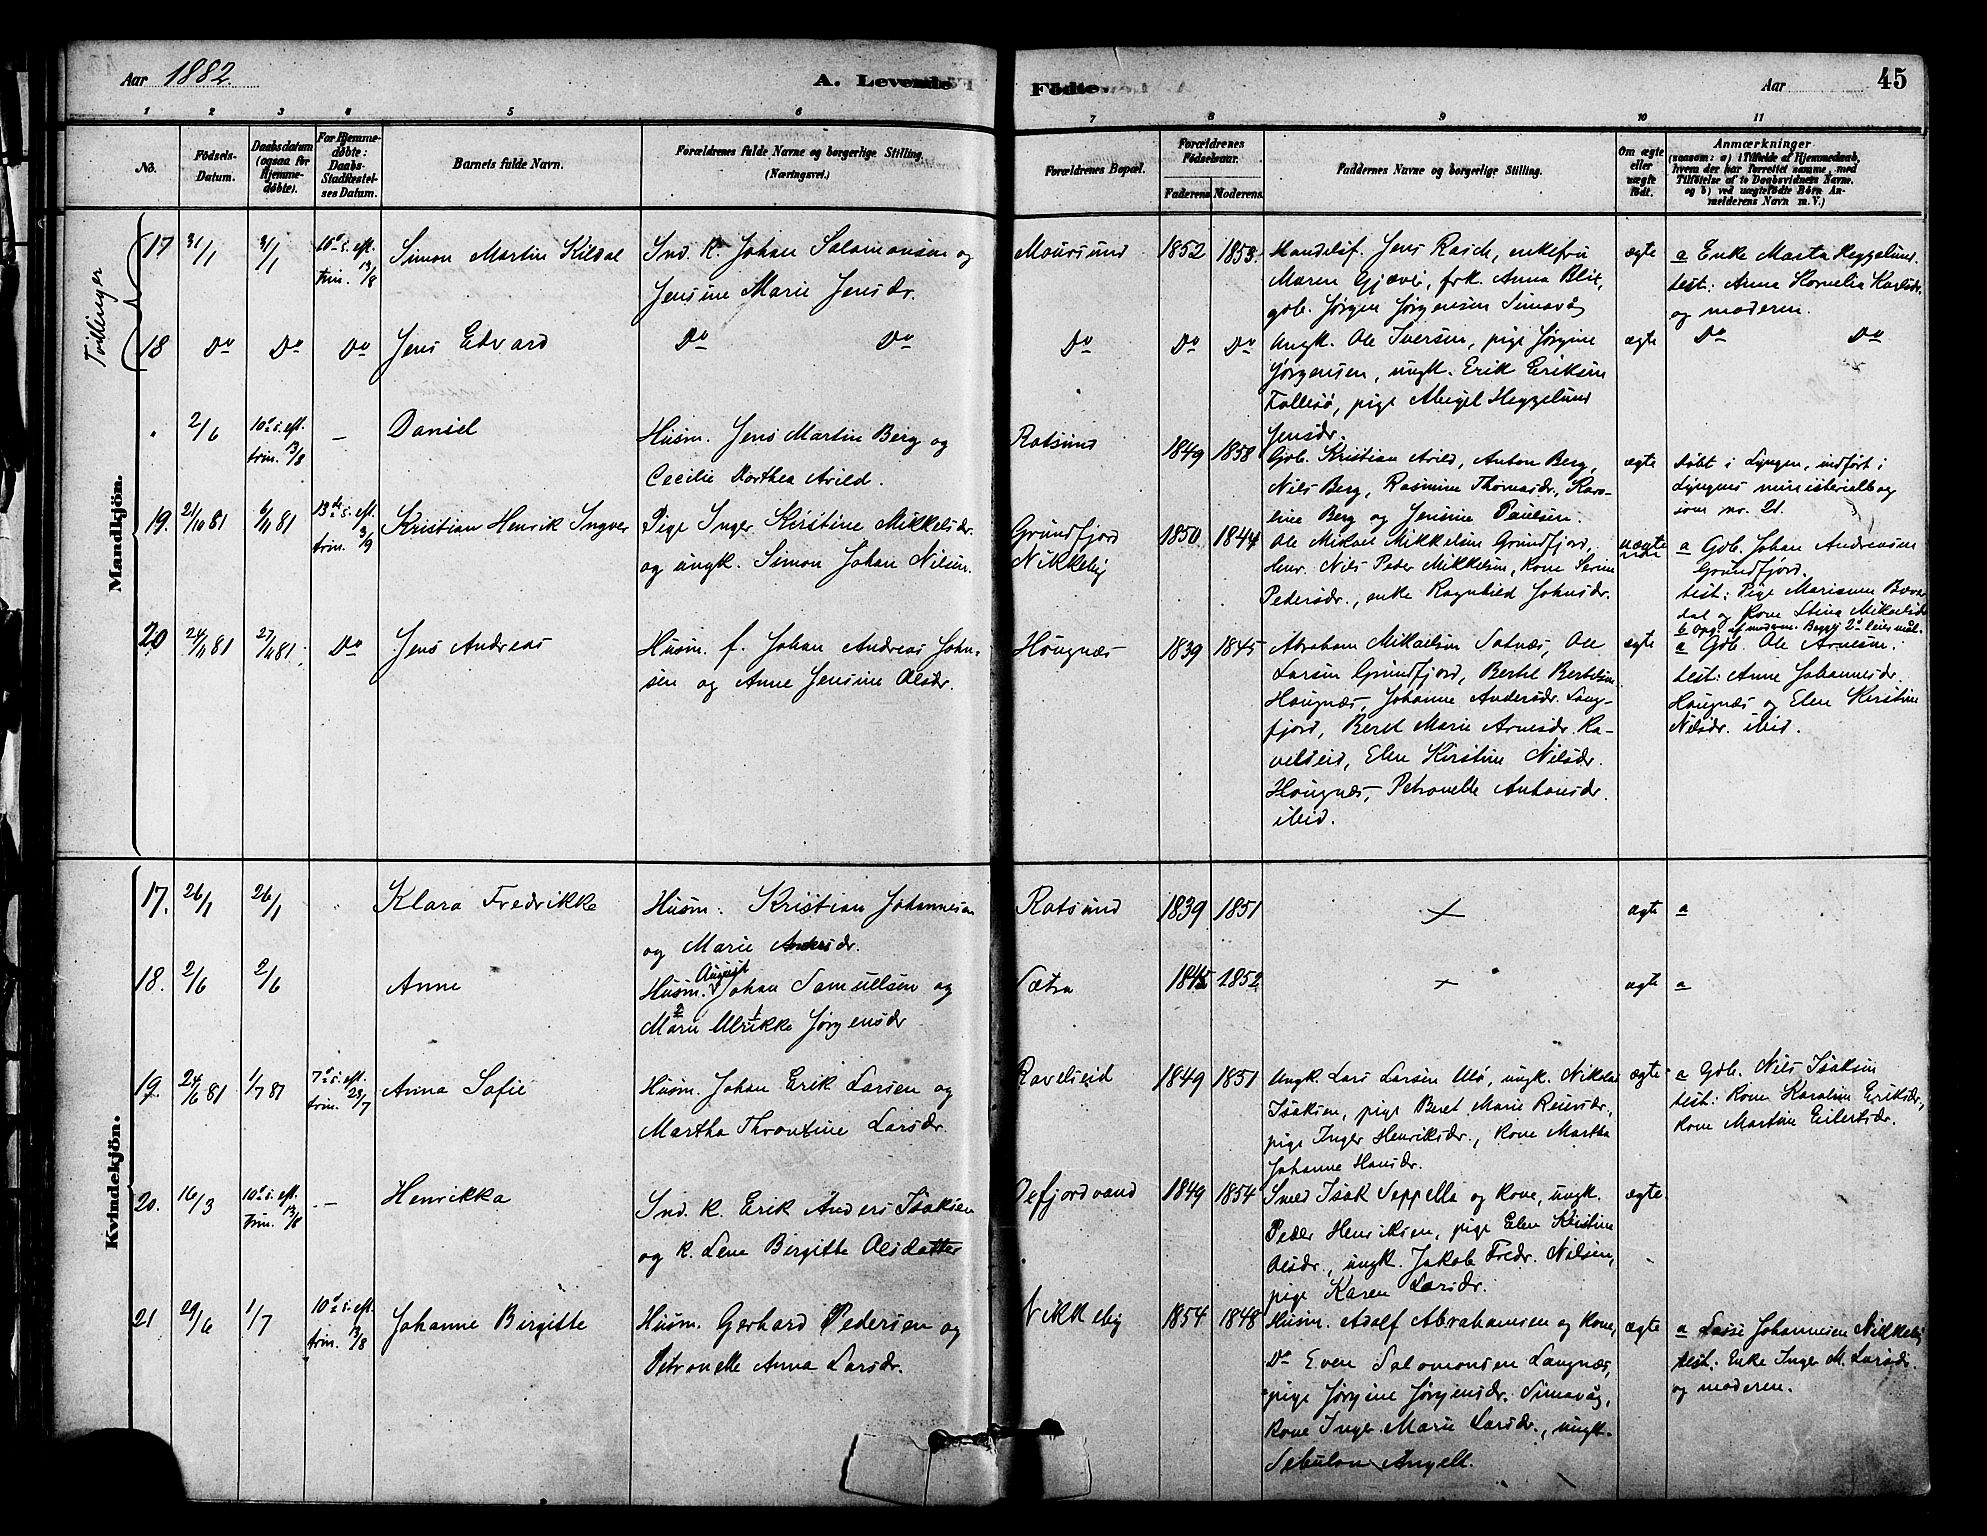 Aar 1882.
A. Levende
Fødte.
Aar
45
1 2 3 4 5 6 7 8 9 10 11
No.
Fødsels-Datum.
Daabsdatum (ogsaa for Hjemmedøbte).
For Hjemmedøbte: Daabs-Stadfæstelses Datum.
Barnets fulde Navn.
Forældrenes fulde Navne og borgerlige Stilling. (Næringsvei.)
Forældrenes Bopæl.
Forældrenes Fødselsaar.
Faderens. Moderens.
Faddernes Navne og borgerlige Stilling.
Om ægte eller uægte født.
Anmærkninger
(saasom: a) i Tilfælde af Hjemmedaab, hvem der har forrettet samme, med Tilføielse af to Daabsvidners Navne. og b) ved uægtefødte Børn Anmelderens Navn m. V.)
Mandkjön.
Tvillinger
17 31/1 31/1 10de s. eft. trin. 13/8 Simon Martin Kildal
Ind. K. Johan Salamonsen og
Jensine Marie Jensdr.
Maursund 1852 1853.
Handelsf. Jens Rasch, enkefru
Maren Gjæver, frk. Anna Blix,
gdb. Jørgen Jørgensen Simavåg
ægte
a Enke Marta Heggelund.
test: Anna Kornelia Karlsdr.
og moderen.
18 Do Do Do Jens Edvard
Do Do
Do Do Do
Ungk. Ole Iversen, pige Jørgine
Jørgensen, ungk. Erik Eriksen
Follesø, pige Abigel Heggelund
Jensdr.
ægte
Do Do
" 2/6 10de s. eft. trin. 13/8 – Daniel
Husm. Jens Martin Berg og
Cecilie Dorthea Arild.
Rotsund 1849 1858
Gdb. Kristian Arild, Anton Berg,
Nils Berg, Rasmine Thomasdr., Karo-
line Berg og Jensine Paulsen.
ægte
Døbt i Lyngen, indført i
Lyngens ministerialbog
som no. 21.
19. 21/10 81 6/11 81 13de s. eft. trin. 3/9 Kristian Henrik Ingver
Pige Inger Kirstine Mikkelsdr.
og ungk. Simon Johan Nilsen.
Grundfjord
Nikkeby
1850 1844
Ole Mikael Mikkelsen Grundfjord,
Nils Peder Mikkelsen, Kone Serine
Pedersdr., enke Ragnhild Johnsdr.
uægte
a Gdb. Johan Andreasen
Grundfjord.
test: Pige Marianne
dal og Kone Stina Mikaelsdr.
b Opg. af moderen. Begges 2det leiermål.
20 24/11 81 27/11 81 Do Jens Andreas
Husm. f. Johan Andreas John-
sen og Anne Jensine Olsdr.
Haugnæs 1839 1845
Abraham Mikaelsen Satnæs, Ole
Larsen Grundfjord, Bertel Bertelsen
Haugnæs, Johanne Andersdr. Lang-
fjord, Beret Marie Arnesdr. Ra-
velseid, Elen Kirstine Nilsdr.
Haugnæs, Petronelle Antonsdr.
ibid.
ægte
a Gdb. Ole Arnesen.
test: Anne Johannesdr.
Haugnæs og Elen Kirstine
Nilsdr. ibid.
Kvindekjön.
17. 26/1 26/1 " Klara Fredrikke
Husm. Kristian Johannesen
og Marie Andersdr.
Rotsund 1839 1851
+
ægte a
18. 2/6 2/6 Anne
August
Husm. Johan Samuelsen og
Marie Ulrikke Jørgensdr
Sætra 1845 1852
+
ægte a
19. 24/6 81 1/7 81 7de s. eft. trin. 23/7 Anna Sofie
Husm. Johan Erik Larsen og
Martha Throntine Larsdr.
Ravelseid 1849 1851
Ungk. Lars Larsen Ulø, ungk. Nikolai
Isaksen, pige Beret Marie Reiersdr.,
pige Inger Henriksdr., Kone Martha
Johanne Hansdr.
ægte
a Gdb. Nils Isaksen
test: Kone Karoline Eriksdr.,
Kone Martine Eilertsdr.
20. 16/3 10de s. eft. trin. 13/8 – Henrikka
Ind. K. Erik Anders Isaksen
og K. Lene Birgitte Olsdatter
Oxfjordvand 1849 1854
Smed Isak Seppella og Kone, ungk.
Peder Henriksen, pige Elen Kristine
Olsdr., ungk. Jakob Fredr. Nilsen,
pige Karen Larsdr.
ægte
21 29/6 1/7 10de s. eft. trin. 13/8 Johanne Birgitte
Husm. Gerhard Pedersen og
Petronelle Anna Larsdr.
Nikkeby 1854 1848
Husm. Adolf Abrahamsen og Kone,
Do Even Salomonsen Langnæs,
pige Jørgine Jørgensdr. Simavåg,
Kone Inger Marie Larsdr., ungk.
Sebulon Angell.
ægte
a Lasse Johannesen Nikkeby
test: Enke Inger M. Larsdr.
og moderen.